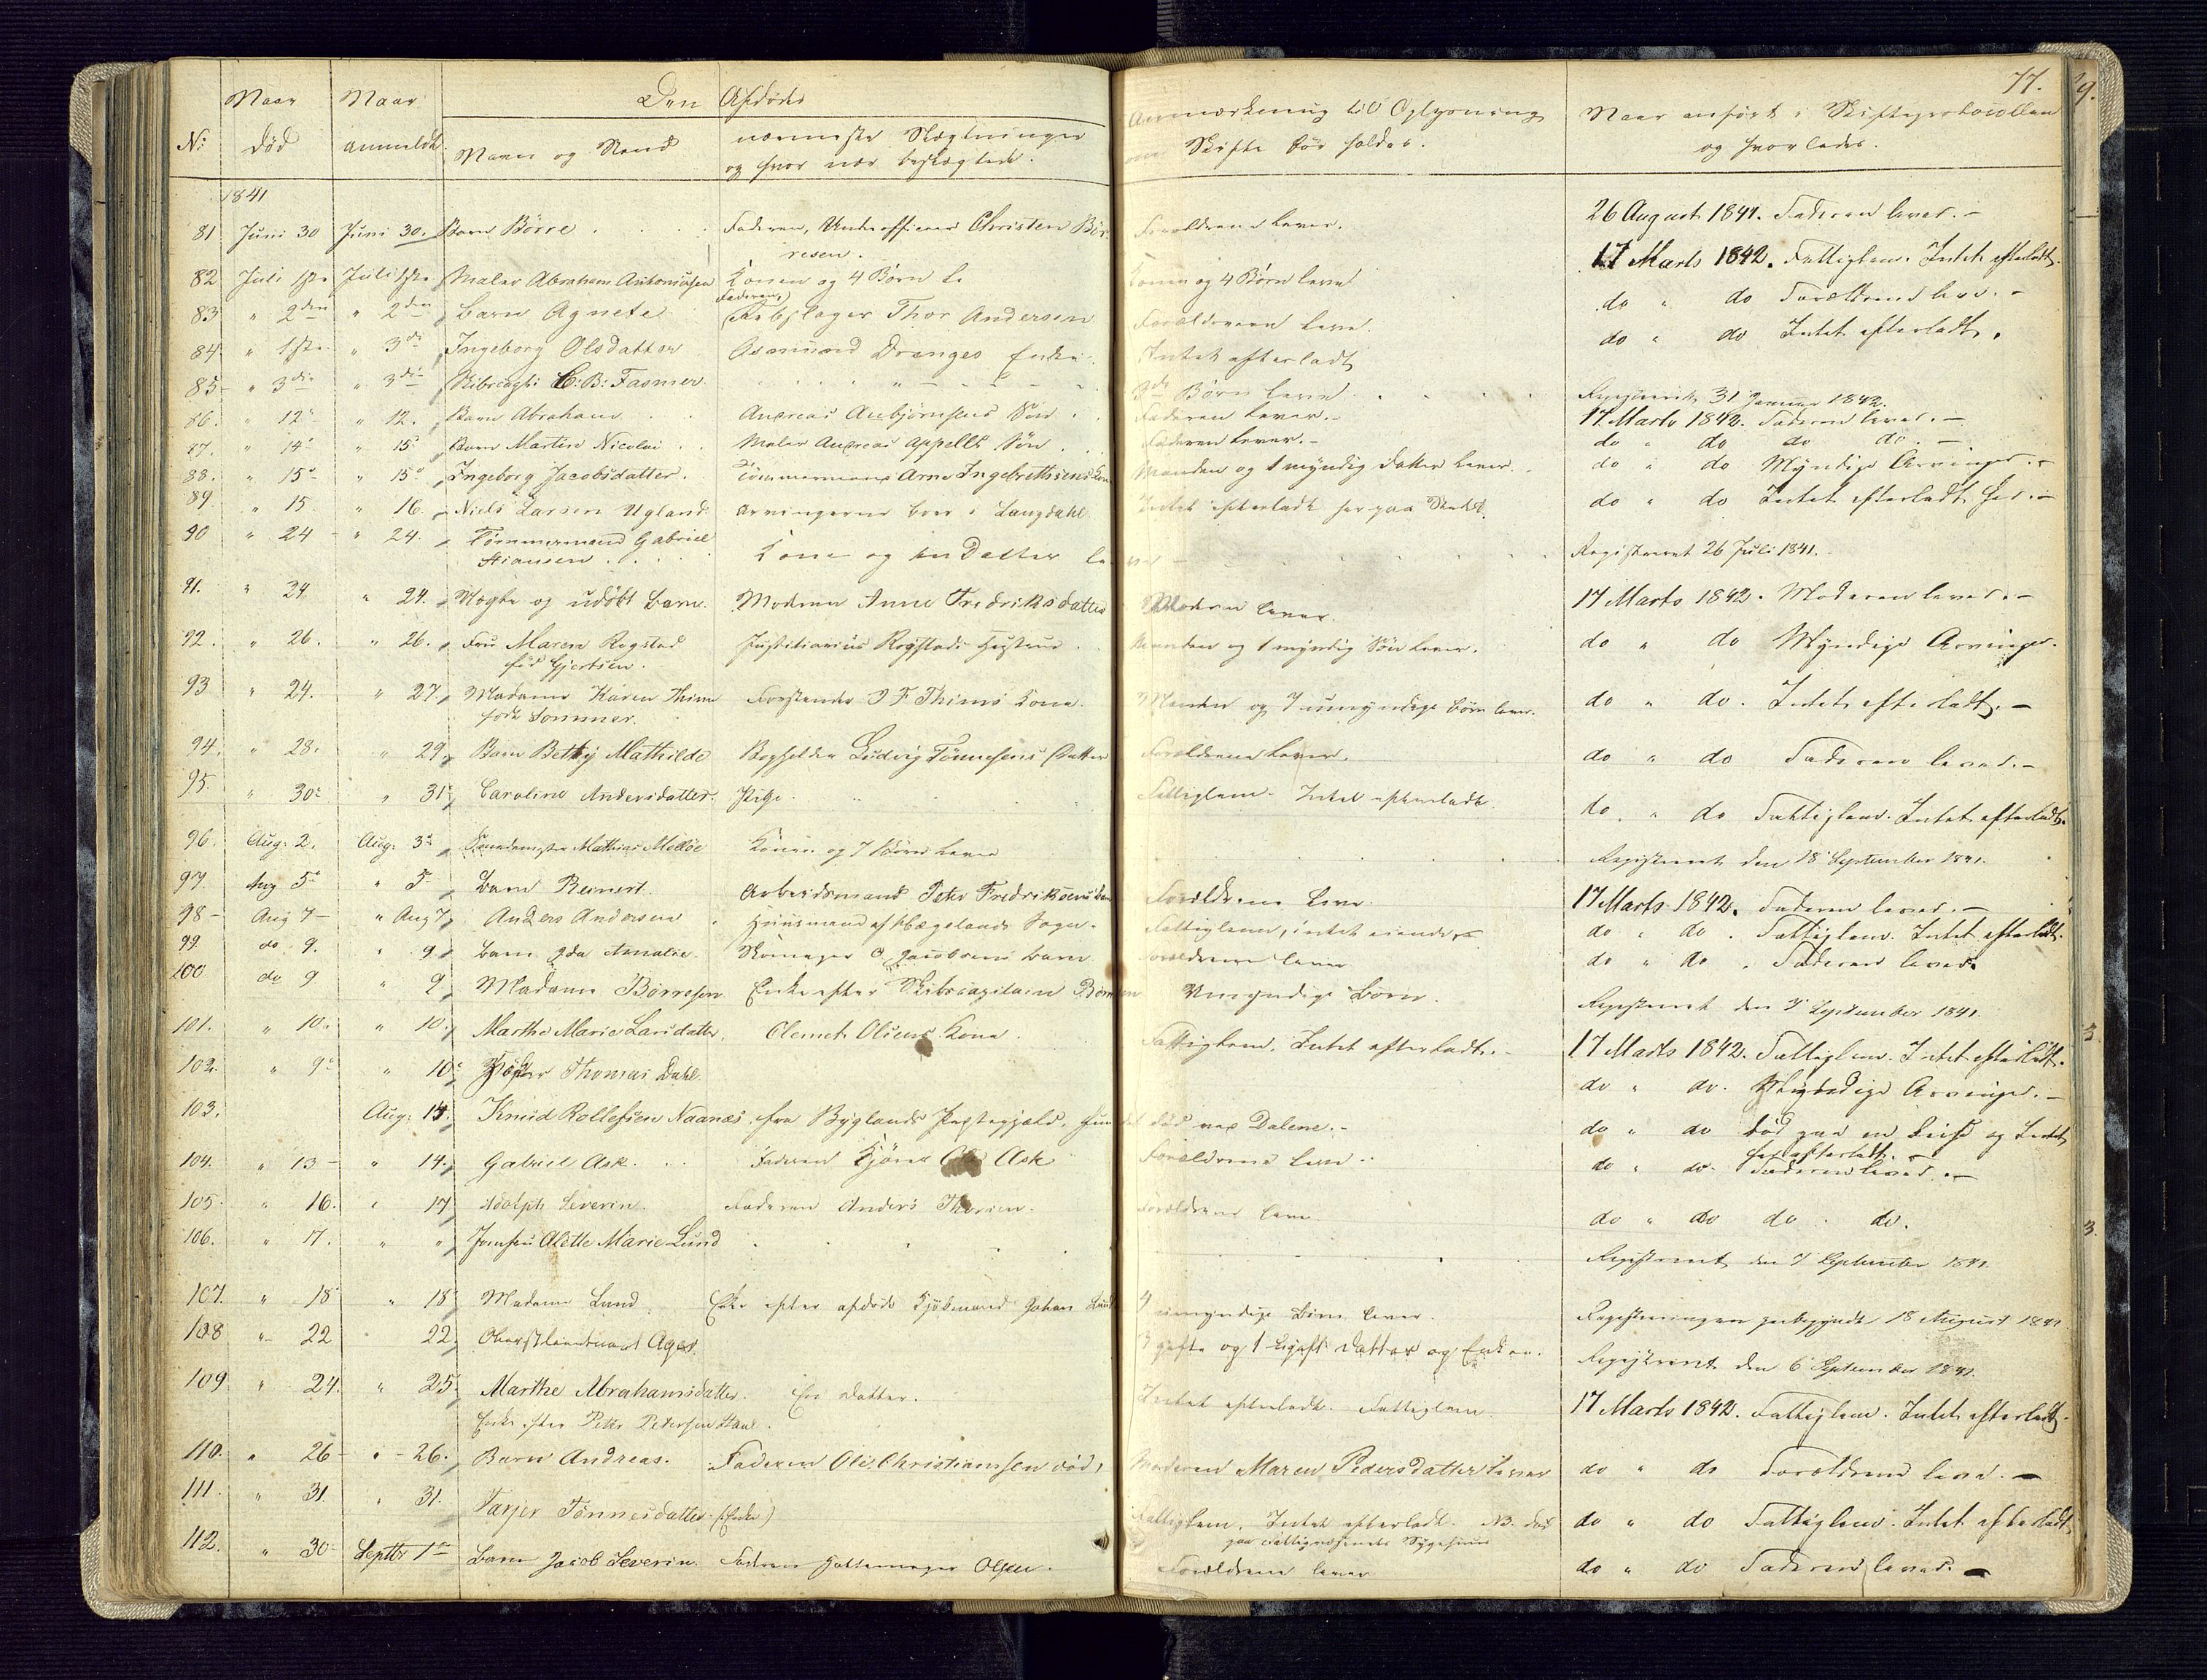 77.
Naar Naar Den Afdødes Anmærkning til Oplysning Naar anført i Skifteprotocollen
No død anmeldt Navn og Stand nærmeste Slægtninger om Skifte bør holdes. og hvorledes.
og hvor nær beslægtede.
1841
81 Juni 30 Juni 30. Barn Börre Faderen, Underofficeer Christen Bör- Forældrene lever. 26 August 1841. Faderen lever. –
resen.
82 Juli 1ste Juli 1ste Maler Abraham Antoniusen Konen og 4 Børn le Konen og 4 Børn lever 17 Marts 1842. Fattiglem. Intet efterladt.
83 " 2den " 2den Barn Agnete Faderen, Rebslager Thor Andersen Forældrene lever. do " do Forældrene leve. –
84 " 1ste " 3die Ingeborg Olsdatter Asmund Dranges Enke Intet efterladt do " do Intet efterladt.
85 " 3die " 3die C: B: Fasmer Børn leve Registreret 31 Januar 1842.
86. " 12 " 12. Barn Abraham Andreas Anbjørnsens Søn Faderen lever. – 17 Marts 1842. Faderen lever. –
87. " 14 " 15 Barn Martin Nicolai Maler Andreas Appelts Søn Faderen lever. – do " do do do. –
88. " 15 " 15 Ingeborg Jacobsdatter. Tømmermand Arne Ingebrethsens Kone Manden og 1 myndig Datter lever. do " do Myndige Arvinger. –
89 " 15 " 16. Niels Larsen Ugland Arvingerne boer i Langdahl Intet efterladt her paa Stedet. do " do Intet efterladt her. –
90 " 24 " 24. Tømmermand Gabriel Kone og en Datter le- ver – Registreret 26 Juli 1841.
Stiansen
91. " 24 " 24. Uægte og udøbt Barn. Moderen Anne Fredriksdatter Moderen lever. 17 Marts 1842. Moderen lever. –
92. " 26. " 26. Fru Maren Rogstad Justitiarius Rogstads Hustrue Manden og 1 myndig Søn lever. do " do Myndige Arvinger.
født Gjertsen.
93 " 24. " 27. Madame Karen Thime Forstander O F Thimes Kone. Manden og 7 umyndige Børn lever. do " do. Intet efterladt. –
født Sommer.
94. " 28. " 29. Barn Bethy Mathilde Bogholder Ludvig Tønnesens Datter Forældrene lever. do " do Faderen lever. –
95. " 30 " 31. Caroline Andersdatter. Pige. Fattiglem. Intet efterladt. do " do Fattiglem. Intet efterladt.
96. Aug. 2. Aug. 3 Mathias Konen og 7 Børn lever Registreret den 18 September 1841.
97. Aug 5 " 5 Barn Reinert. Arbeidsmand Peter Fredriksens Barn Forældrene leve. 17 Marts 1842. Faderen lever. –
98 – Aug 7 – " Aug 7 Anders Andersen Huusmand af Hægelands Sogn. Fattiglem, intet eiende do " do. Fattiglem. Intet efterladt.
99. do 9. " 9. Barn Ida Amalie. Skomager O. Jacobsens Barn Forældrene lever do " do. Faderen lever.
100 do 9 " 9 Madame Børresen Enke efter Skibscapitain Børresen Umyndige Børn. Registreret den 7 September 1841.
101. " 10. " 10. Marthe Marie Larsdatter, Clemet Olsens Kone. Fattiglem. Intet efterladt. – 17 Marts 1842. Fattiglem. Intet efterladt.
102. " 9 " 10 Thomas Dahl. do " do. Myndige Arvinger. –
103. Aug: 14. Knud Rollefsen Naanæs fra Byglands Præstegjæld, død ved Dalene. – do " do død paa en Reise og Intet
her efterladt. –
104. " 13 – " 14. Gabriel Ask. Faderen Ask Forældrene leve do " do. Faderen lever. –
105. " 16. " 17 Adolph Severin. Faderen Anders Thorsen. Forældrene leve do " do do do.
106. " 17. " " Jomfru Alette Marie Lund Registreret den 7 September 1841.
107. " 18 " 18 Madame Lund Enke efter afdøde Kjøbmand Johan Lund 4 umyndige Børn lever. Registreringen paabegyndt 18 August 1841
108 " 22 22. Oberstlieutnant 3 gifte og 1 ugift Datter og Enken. Registreret den 6 September 1841.
109 " 24. " 25. Marthe Abrahamsdatter. En Datter. Intet efterladt. Fattiglem 17 Marts 1842. Fattiglem. Intet efterladt.
Enke efter Peder Pedersen
110. " 26 – " – 26. Barn Andreas. Faderen Ole Christiansen død, Moderen Maren Pedersdatter lever do " do Forældrene leve. –
111. " 31. " 31. Tarjer Tønnesdatter (Enke) Fattiglem. Intet efterladt. NB. død do " do Fattiglem. Intet efterladt
paa Fattigvæsenets Sygehuus
112. " 30 – Septbr 1 Barn Jacob Severin. Faderen Olsen. Forældrene lever do " do Faderen lever. –